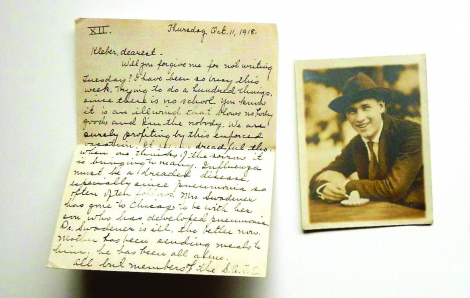 XII.
Thursday, Oct. 11, 1918.
Kleber, dearest -
Will you forgive me for not writing
Tuesday? I have been so busy this
week, trying to do a hundred things,
since there is no school. You know
it is an ill wind that blows nobody
good, and few the nobody. We are
surely profiting by this enforced
vacation. It is dreadful tho,
when one thinks of the sorrow it
is bringing to many. Influenza
must be a dreaded disease,
especially since pneumonia so
often follows. Mrs Swadener
has gone to Chicago to be with her
son, who has developed pneumonia.
Dr. Swadener is ill, tho better now.
Mother has been sending meals to
him, he has been all alone.
All but members of the S.A.T.C.